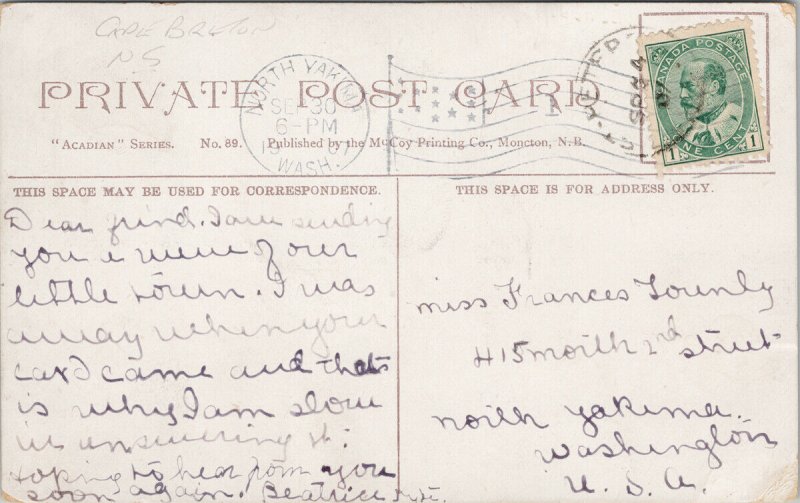 CAPE BRETON
NS
PRIVATE POST CARD
NORTH YAKIMA
SEP 30
6-PM
WASH.
1
ST. PETER
SP 24
CANADA POSTAGE
ONE CENT
1 1
"ACADIAN" SERIES. No. 89. Published by the McCoy Printing Co., Moncton, N.B.
THIS SPACE MAY BE USED FOR CORRESPONDENCE.
THIS SPACE IS FOR ADDRESS ONLY.
Dear frind. I am sending
you a wiew of our
little town. I was
away when your
card came and thats
is why I am slow
in answering it:
hoping to hear from you
soon again. Beatrice
miss Frances
415 north 2nd street
north yakima.
washington
U. S. A.